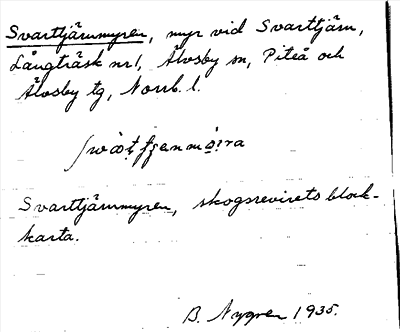 Svarttjärnmyren, myr vid Svarttjärn,
Långträsk nr 1, Älvsby sn, Piteå och
Älvsby tg, Norrb. l.
Svarttjärnmyren, skogsrevirets block-
karta.
B. Nygren 1935.